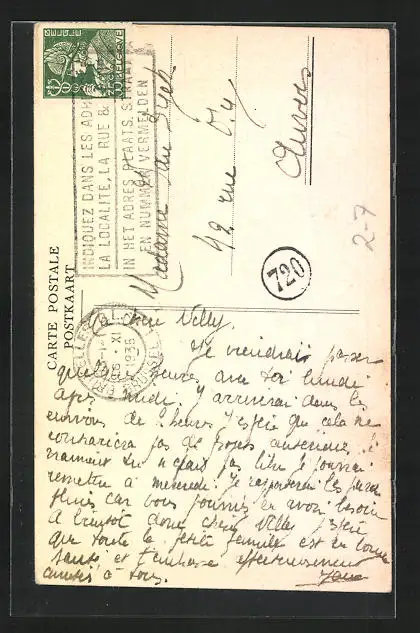 BELGIE BELGIQUE
INDIQUEZ DANS LES ADR
LA LOCALITÉ, LA RUE &
IN HET ADRES PLAATS, STRAAT
EN NUMMER VERMELDEN
CARTE POSTALE
POSTKAART
Madame Van
42 rue
Anvers
720
2-7
BRUXELLES
XI
1935
BRUSSEL
Ma chère Velly,
Je viendrais passer
quelques heures avec toi lundi
après midi. J'arriverai dans les
environs de 2 heures j'espère que cela ne
contrariera pas de projets antérieurs. Si
vraiment tu n'étais pas libre je pourrai
remettre à mercredi. Je rapporterai les
car vous pourriez en avoir besoin
A bientôt donc chère Velly j'espère
que toute la petite famille est en bonne
santé et t'embrasse affectueusement
amitiés à tous.